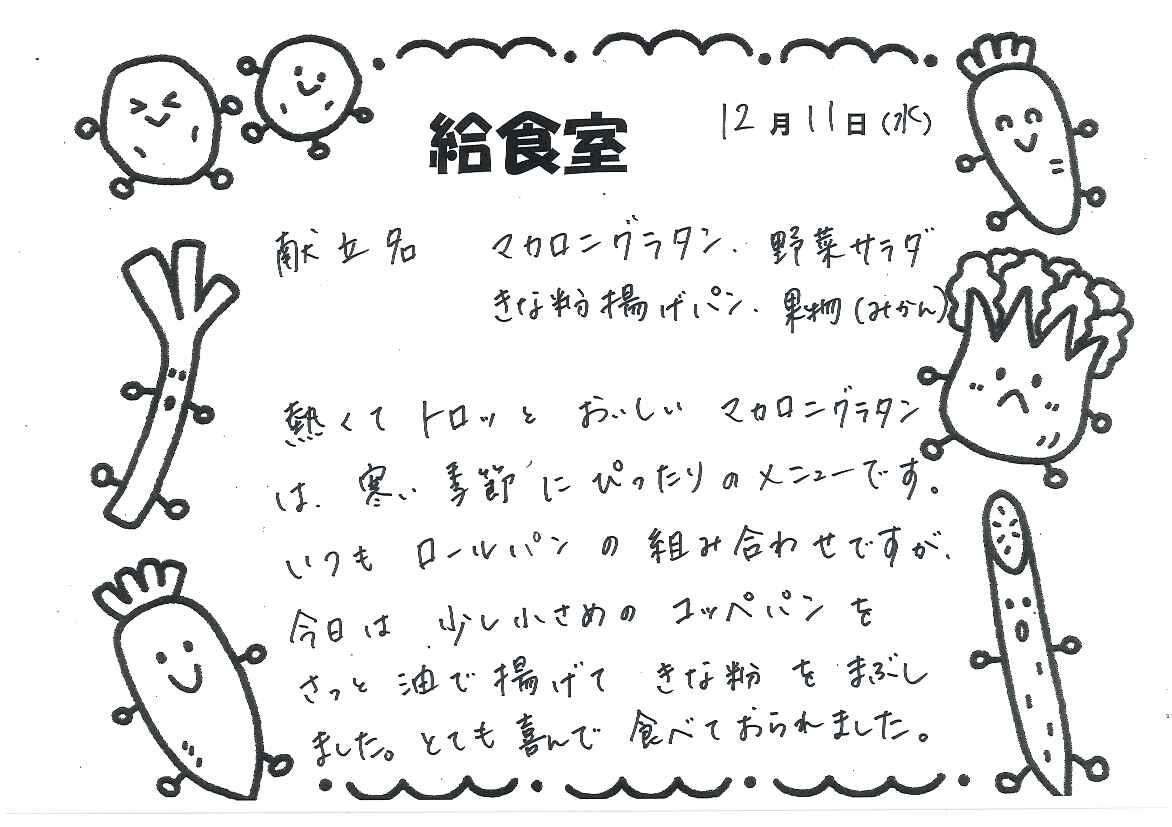 給食室
12月11日(水)
献立名 マカロニグラタン、野菜サラダ
きな粉揚げパン、果物(みかん)
熱くてトロッとおいしいマカロニグラタン
は、寒い季節にぴったりのメニューです。
いつもロールパンの組み合わせですが、
今日は少し小さめのコッペパンを
さっと油で揚げてきな粉をまぶし
ました。とても喜んで食べておられました。